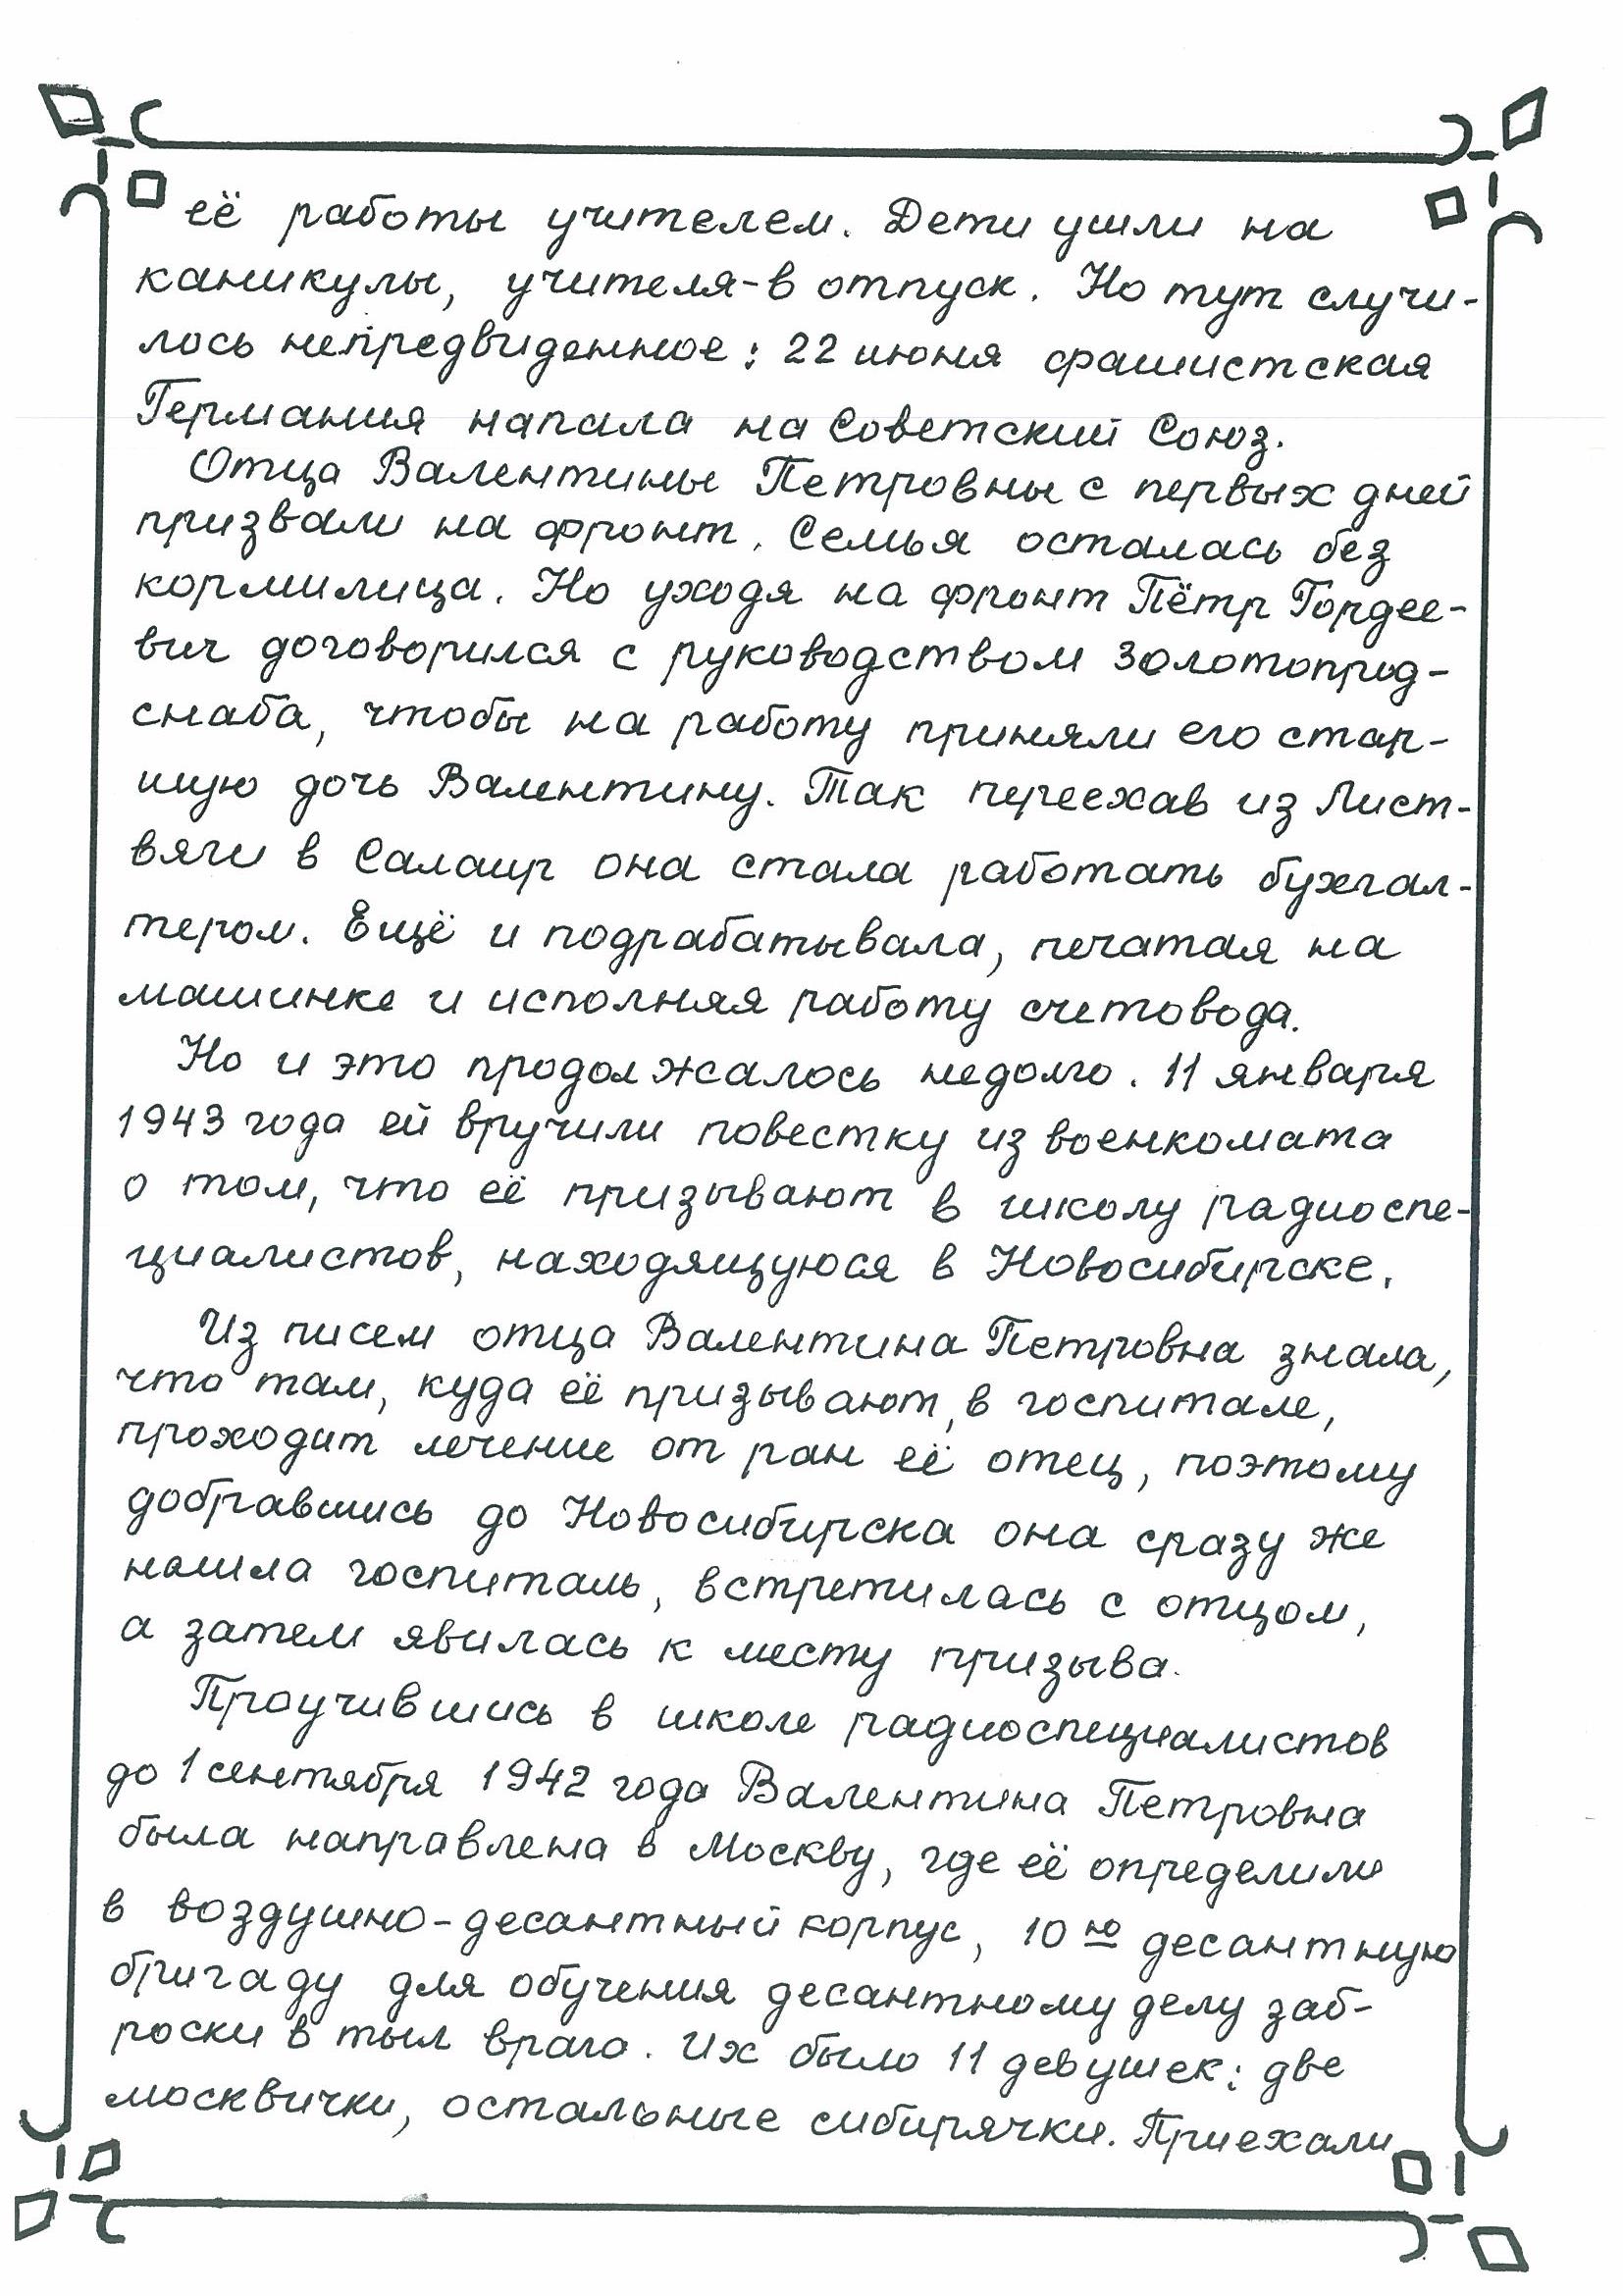 её работы учителем. Дети ушли на
каникулы, учителя-в отпуск. Но тут случи-
лось непредвиденное: 22 июня фашистская
Германия напала на Советский Союз.
Отца Валентины Петровны с первых дней
призвали на фронт. Семья осталась без
кормилица. Но уходя на фронт Пётр Гордее-
вич договорился с руководством Золотопрод-
снаба, чтобы на работу приняли его стар-
шую дочь Валентину. Так переехав из Лист-
вяги в Салаир она стала работать бухгал-
тером. Ещё и подрабатывала, печатая на
машинке и исполняя работу счетовода.
Но и это продолжалось недолго. 11 января
1943 года ей вручили повестку из военкомата
о том, что её призывают в школу радиоспе-
циалистов, находящуюся в Новосибирске.
Из писем отца Валентина Петровна знала,
что там, куда её призывают, в госпитале,
проходит лечение от ран её отец, поэтому
добравшись до Новосибирска она сразу же
нашла госпиталь, встретилась с отцом,
а затем явилась к месту призыва.
Проучившись в школе радиоспециалистов
до 1 сентября 1942 года Валентина Петровна
была направлена в Москву, где её определили
в воздушно-десантный корпус, 10 ю десантную
бригаду для обучения десантному делу заб-
роски в тыл врага. Их было 11 девушек: две
москвички, остальные сибирячки. Приехали